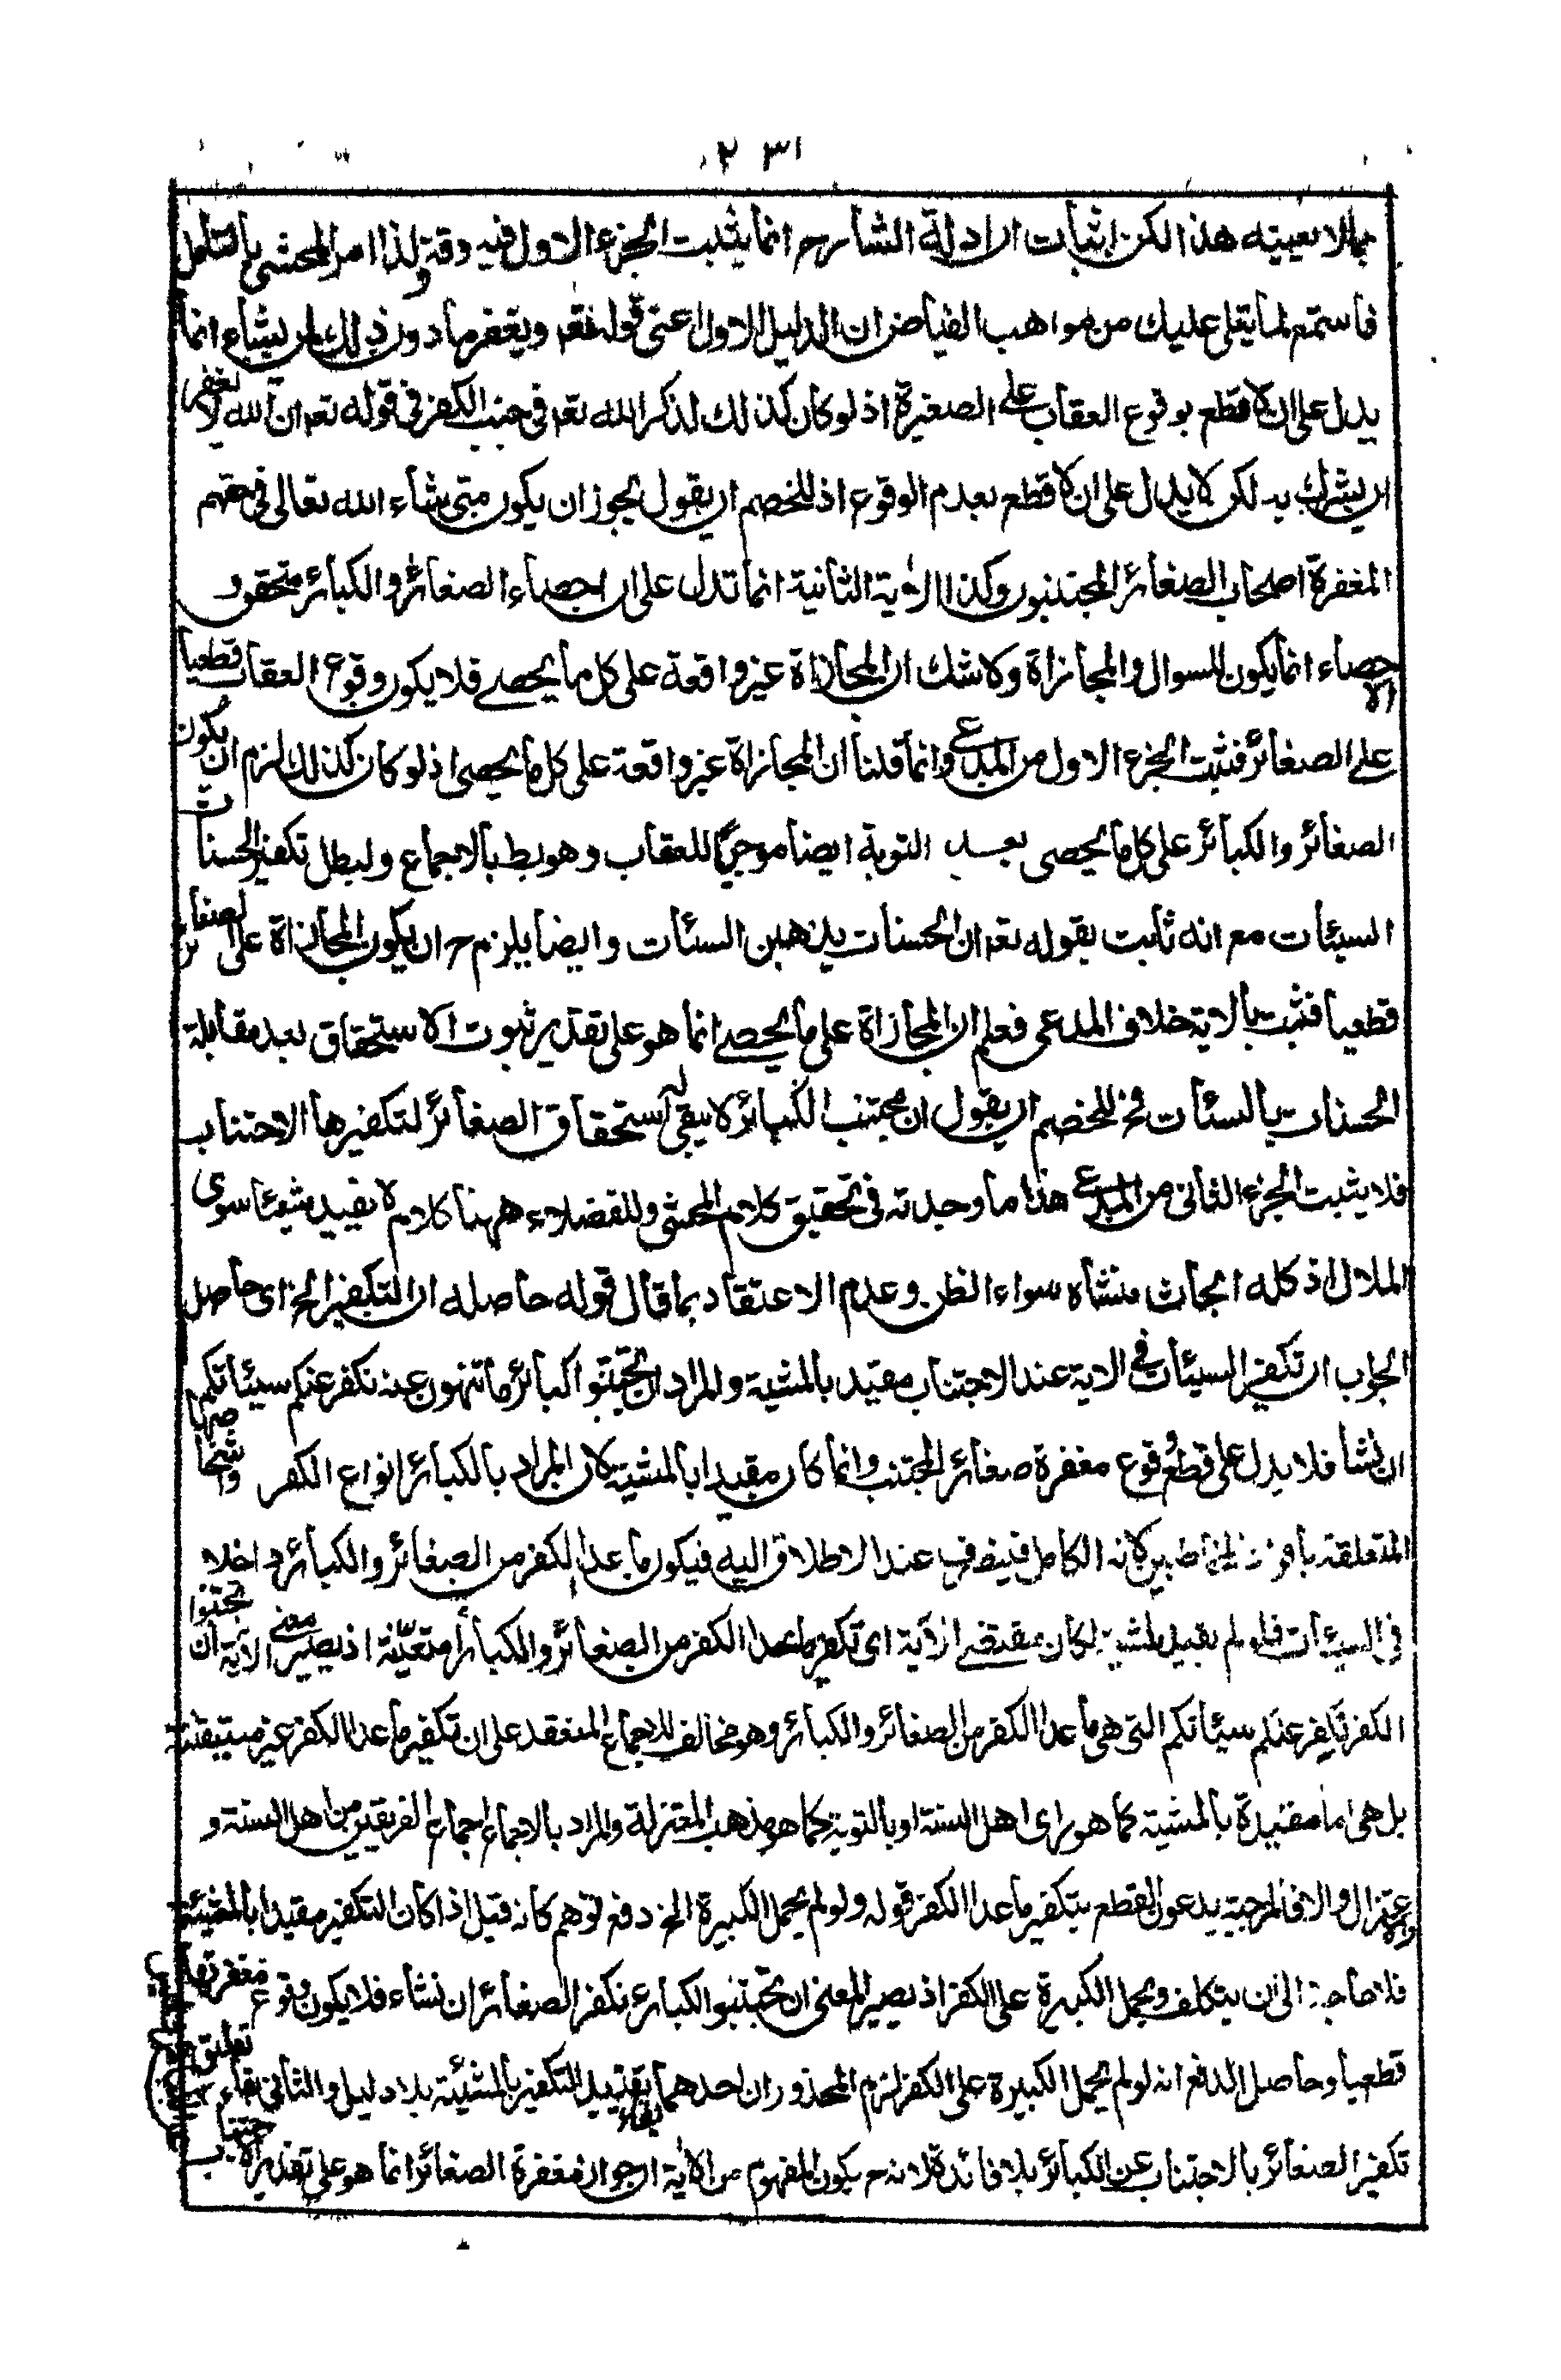 ٢٣١
بما لا يعينه هذا لكن اثبات ان ادلة الشارح انما يثبت الجزء الاول فيه دقة ولذا امر المحشى بالتأمل
فاستمع لما يتلى عليك من مواهب الفياض ان الدليل الاول اعنى قوله تعم ويغفر ما دون ذلك لمن يشاء انما
يدل على ان لا قطع بوقوع العقاب على الصغيرة اذ لو كان كذلك لذكر الله تعم فى جنب الكفر فى قوله تعم ان الله لا يغفر
ان يشرك به لكن لا يدل على ان لا قطع بعدم الوقوع اذ للخصم ان يقول يجوز ان يكون متى شاء الله تعالى فى حقهم
المغفرة اصحاب الصغائر المجتنبون وكذا الاية الثانية انما تدل على ان احصاء الصغائر والكبائر متحقق و
الاحصاء انما يكون للسوال والمجازاة ولا شك ان المجازاة غير واقعة على كل ما يحصى فلا يكون وقوع العقاب قطعيا
على الصغائر فثبت الجزء الاول من المدعى وانما قلنا ان المجازاة غير واقعة على كل ما يحصى اذ لو كان كذلك لزم ان يكون
الصغائر والكبائر على كل ما يحصى بعد التوبة ايضا موجبا للعقاب وهو بط بالاجماع ولبطل تكفير الحسنات
السيئات مع انه ثابت بقوله تعم ان الحسنات يذهبن السيئات وايضا يلزم ح ان يكون المجازاة على الصغائر
قطعيا فثبت بالاية خلاف المدعى فعلم ان المجازاة على ما يحصى انما هو على تقدير ثبوت الاستحقاق بعد مقابلة
الحسنات بالسيئات فح للخصم ان يقول ان مجتنب الكبائر لا يبقى له استحقاق الصغائر لتكفيرها الاجتناب
فلا يثبت الجزء الثانى من المدعى هذا ما وجدته فى تحقيق كلام المحشى وللفضلاء ههنا كلام لا يفيد شيئا سوى
الملال اذ كله ابحاث منشأه سواء الظن وعدم الاعتقاد بما قال قوله حاصله ان التكفير الخ اى حاصل
الجواب ان تكفير السيئات فى الاية عند الاجتناب مقيد بالمشية والمراد ان تجتنبوا كبائر ما تنهون عنه نكفر عنكم سيئاتكم
ان نشأ فلا يدل على قطع وقوع مغفرة صغائر المجتنب وانما كان مقيدا بالمشية لان المراد بالكبائر انواع الكفر واشخاصها
المتعلقة بافراد المخاطبين لانه الكامل فينصرف عند الاطلاق اليه فيكون ما عدا الكفر من الصغائر والكبائر داخلا
فى السيئات فلو لم يقيد بالمشية لكان مقتضى الآية اى تكفير ما عدا الكفر من الصغائر والكبائر متعيّنة اذ يصير معنى الاية ان تجتنبوا
الكفر نكفر عنكم سيئاتكم التى هى ما عدا الكفر من الصغائر والكبائر وهو مخالف للاجماع المنعقد على ان تكفير ما عدا الكفر غير متيقنة
بل هى اما مقيدة بالمشية كما هو راى اهل السنة او بالتوبة كما هو مذهب المعتزلة والمراد بالاجماع اجماع الفريقين من اهل السنة و
الاعتزال والا فالمرجية يدعون القطع بتكفير ما عدا الكفر قوله ولو لم يحمل الكبيرة الخ دفع توهم كانه قيل اذا كان التكفير مقيدا بالمشيئة
فلا حاجة الى ان يتكلف ويحمل الكبيرة على الكفر اذ يصير المعنى ان تجتنبوا الكبائر نكفر الصغائر ان نشاء فلا يكون وقوع مغفرتها
قطعيا وحاصل الدفع انه لو لم يحمل الكبيرة على الكفر لزم المحذوران احدهما بقاء تقييد التكفير بالمشيئة بلا دليل والثانى بقاء تعليق
تكفير الصغائر بالاجتناب عن الكبائر بلا فائدة لانه ح يكون المفهوم من الاية ان جواز مغفرة الصغائر انما هو على تقدير الاجتناب